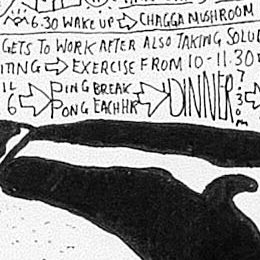 6.30 WAKE UP ⇨ CHAGGA MUSHROOM
GETS TO WORK AFTER ALSO TAKING SOLU
ITING ⇨ EXERCISE FROM 10-11.30
6 ⇨ PING BREAK ⇨ DINNER 7
PONG EACH HR